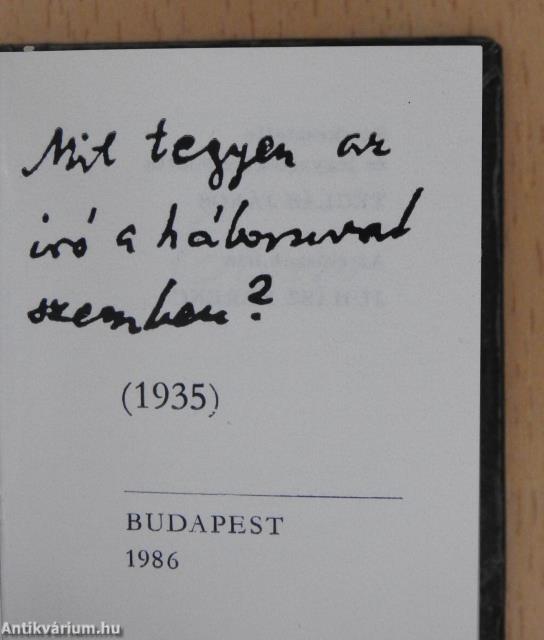 Mit tegyen az
író a háborúval
szemben?
(1935)
BUDAPEST
1986
Antikvárium.hu